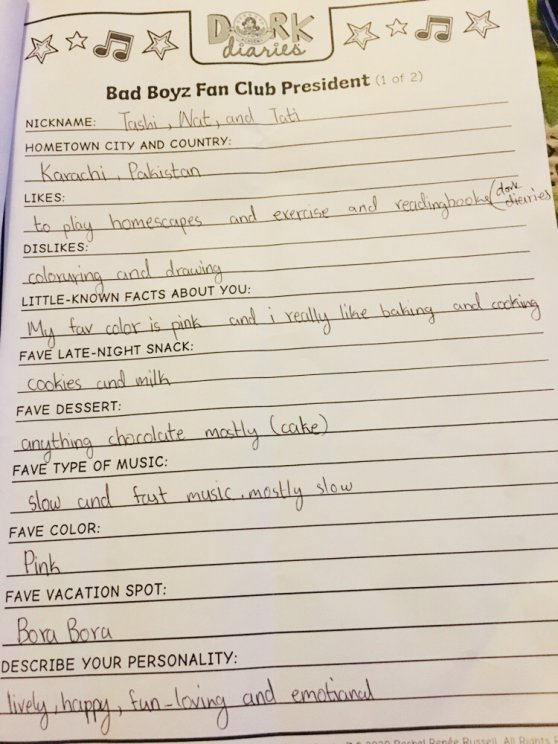 DORK
diaries
Bad Boyz Fan Club President (1 of 2)
NICKNAME: Tashi, Nat, and Tati
HOMETOWN CITY AND COUNTRY:
Karachi, Pakistan
LIKES:
to play homescapes and exercise and readingbooks (dork
dieries
DISLIKES:
colouring and drawing
LITTLE-KNOWN FACTS ABOUT YOU:
My fav color is pink and i really like baking and cooking
FAVE LATE-NIGHT SNACK:
cookies and milk
FAVE DESSERT:
anything chocolate mostly (cake)
FAVE TYPE OF MUSIC:
slow and fast music, mostly slow
FAVE COLOR:
Pink
FAVE VACATION SPOT:
Bora Bora
DESCRIBE YOUR PERSONALITY:
lively, happy, fun-loving and emotional
2020 Rachel Renée Russell. All Rights